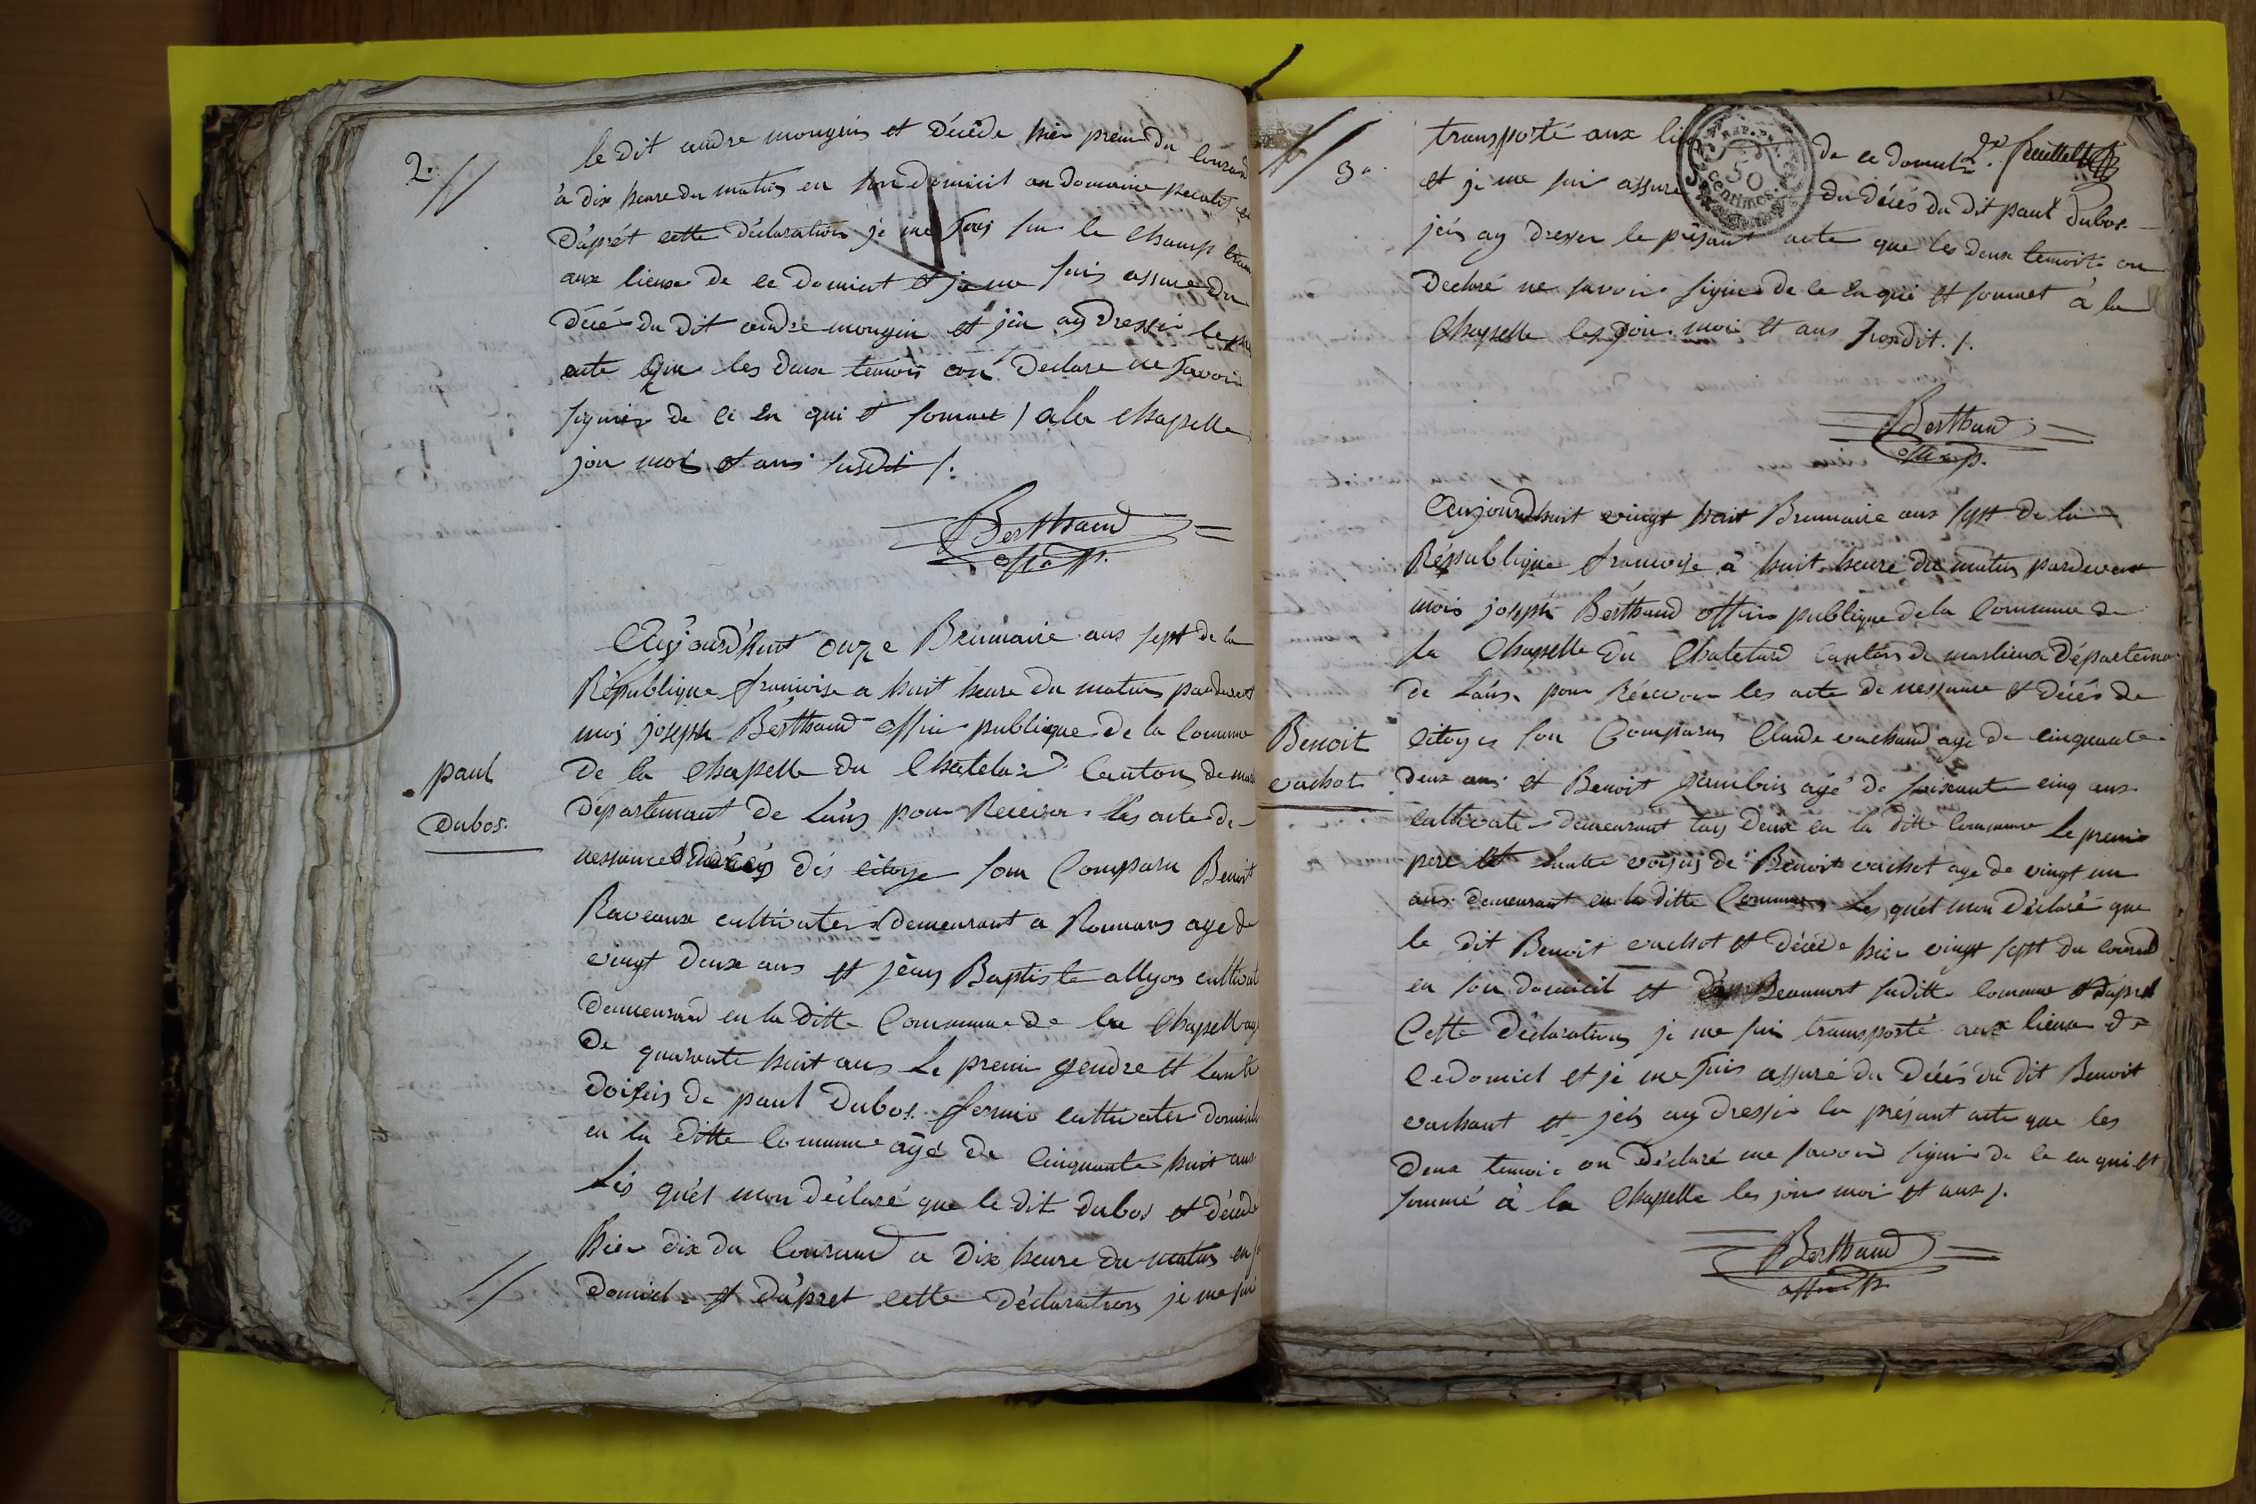 2.
le dit andre mongin et décéde hier premie du courand
à dix heure du matin en son domicil au domaine
d'aprét cette déclaration je me suis sur le champ tran
aux lieux de ce domicil et je me suis assuré du
décé du dit andre mongin et jén ay dressér le pré
acte que les deux temois on déclaré ne savoir
signér de ce en qui et sommet / a la Chapelle
jou mois et ans susdit /.
Berthaud
off. p.
paul
dubos.
Aujourd'huit onze Brumaire ans sept de la
République françoise a huit heure du matin pardevent
moi joseph Bérthaud offici publique de la Commune
de la Chapelle du Chatelard Canton de marl
département de L'ain pour Recevoir les acte de
nessance & décés dés citoye son Comparu Benoit
Raveaux cultivater demeurant a Romans age de
vingt deux ans et jéan Baptiste allyon cultivat
demeurand en la ditte Commune de la Chapell agé
de quarante huit ans Le premie gendre et lautre
voisin de paul dubos fermie cultivater domicilie
en la ditte Commune agé de cinquante huit ans
Lés quéls mon déclaré que le dit dubos et décéde
hier dix du Courand a dix heure du matin en so
domicil et d'apret cette déclaration je me sui
3.
transporté aux lieu de ce domicil 2e. feuillet
et je me sui assuré du décés du dit paul dubos.
REP. FR.
50
CENTIMES
jén ay dresser le présant acte que les deux temoit on
declaré ne savoir signer de ce en qui et sommet à la
Chapelle les jour moi et ans susdit /.
Berthaud
off. p.
Benoit
vachot
Aujourdhuit vingt huit Brumaire ans sept de la
République francoise à huit heure du matin pardevent
mois joséph Bérthaud offici publique de la Commune de
la Chapelle du Chatelard Canton de marlieux Départemen
de L'ain pour Récevoir les acte de nessance et décés de
citoyes son Comparu Claude vachaud agé de cinquante
deux ans et Benoit jambin agé de soixante cinq ans
cultivate demeurant tous deux en la ditte Commune Le premie
pere et lautre voisin de Benoit vachot age de vingt un
ans demeurant en la ditte Commune Les quél mon déclaré que
le dit Benoit vachot et décéde hier vingt sept du courand
en son domicil et Beaumort suditte commune & d'apret
Cette déclaration je me sui transporté aux lieux de
ce domicl et je me suis assuré du décés du dit Benoit
vachaut et jén ay dressir la présant acte que les
deux temoie on Déclaré ne savoir signér de ce en qui et
sommé à la Chapelle les jour moi et ans /.
Berthaud
offici p.